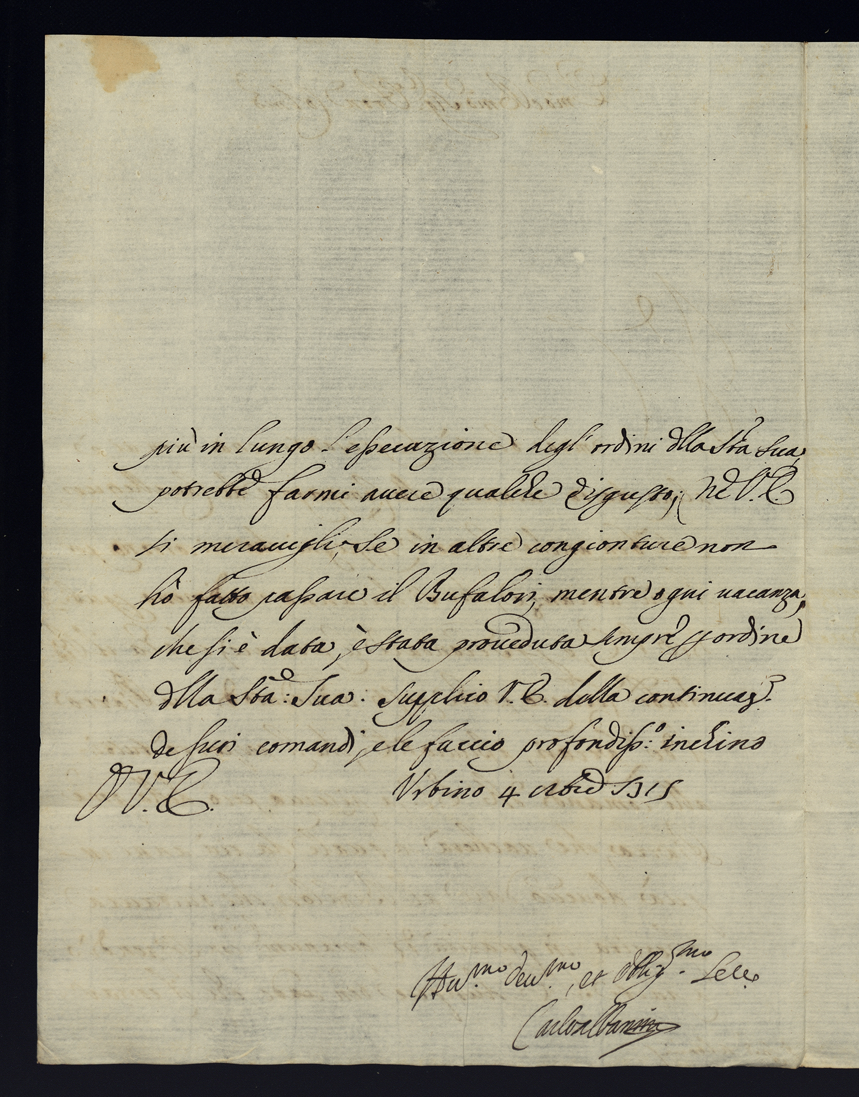 più in lungo l'essecuzione degl'ordini dlla Stà Sua,
potrebbe farmi avere qualche disgusto; Nè V. E.
si meravigli, se in altre congionture non
hò fatto passare il Bufalori, mentre ogni vacanza,
che si è data, è stata proveduta sempre p ordine
dlla Stà: Sua: supplico V. E. della continuaz.e
de suoi comandi, e le faccio profondiss.o inchino
D V. E. Urbino 4
Hu.mo deu.mo, et obblig.mo Ser.e
Carlo Albani